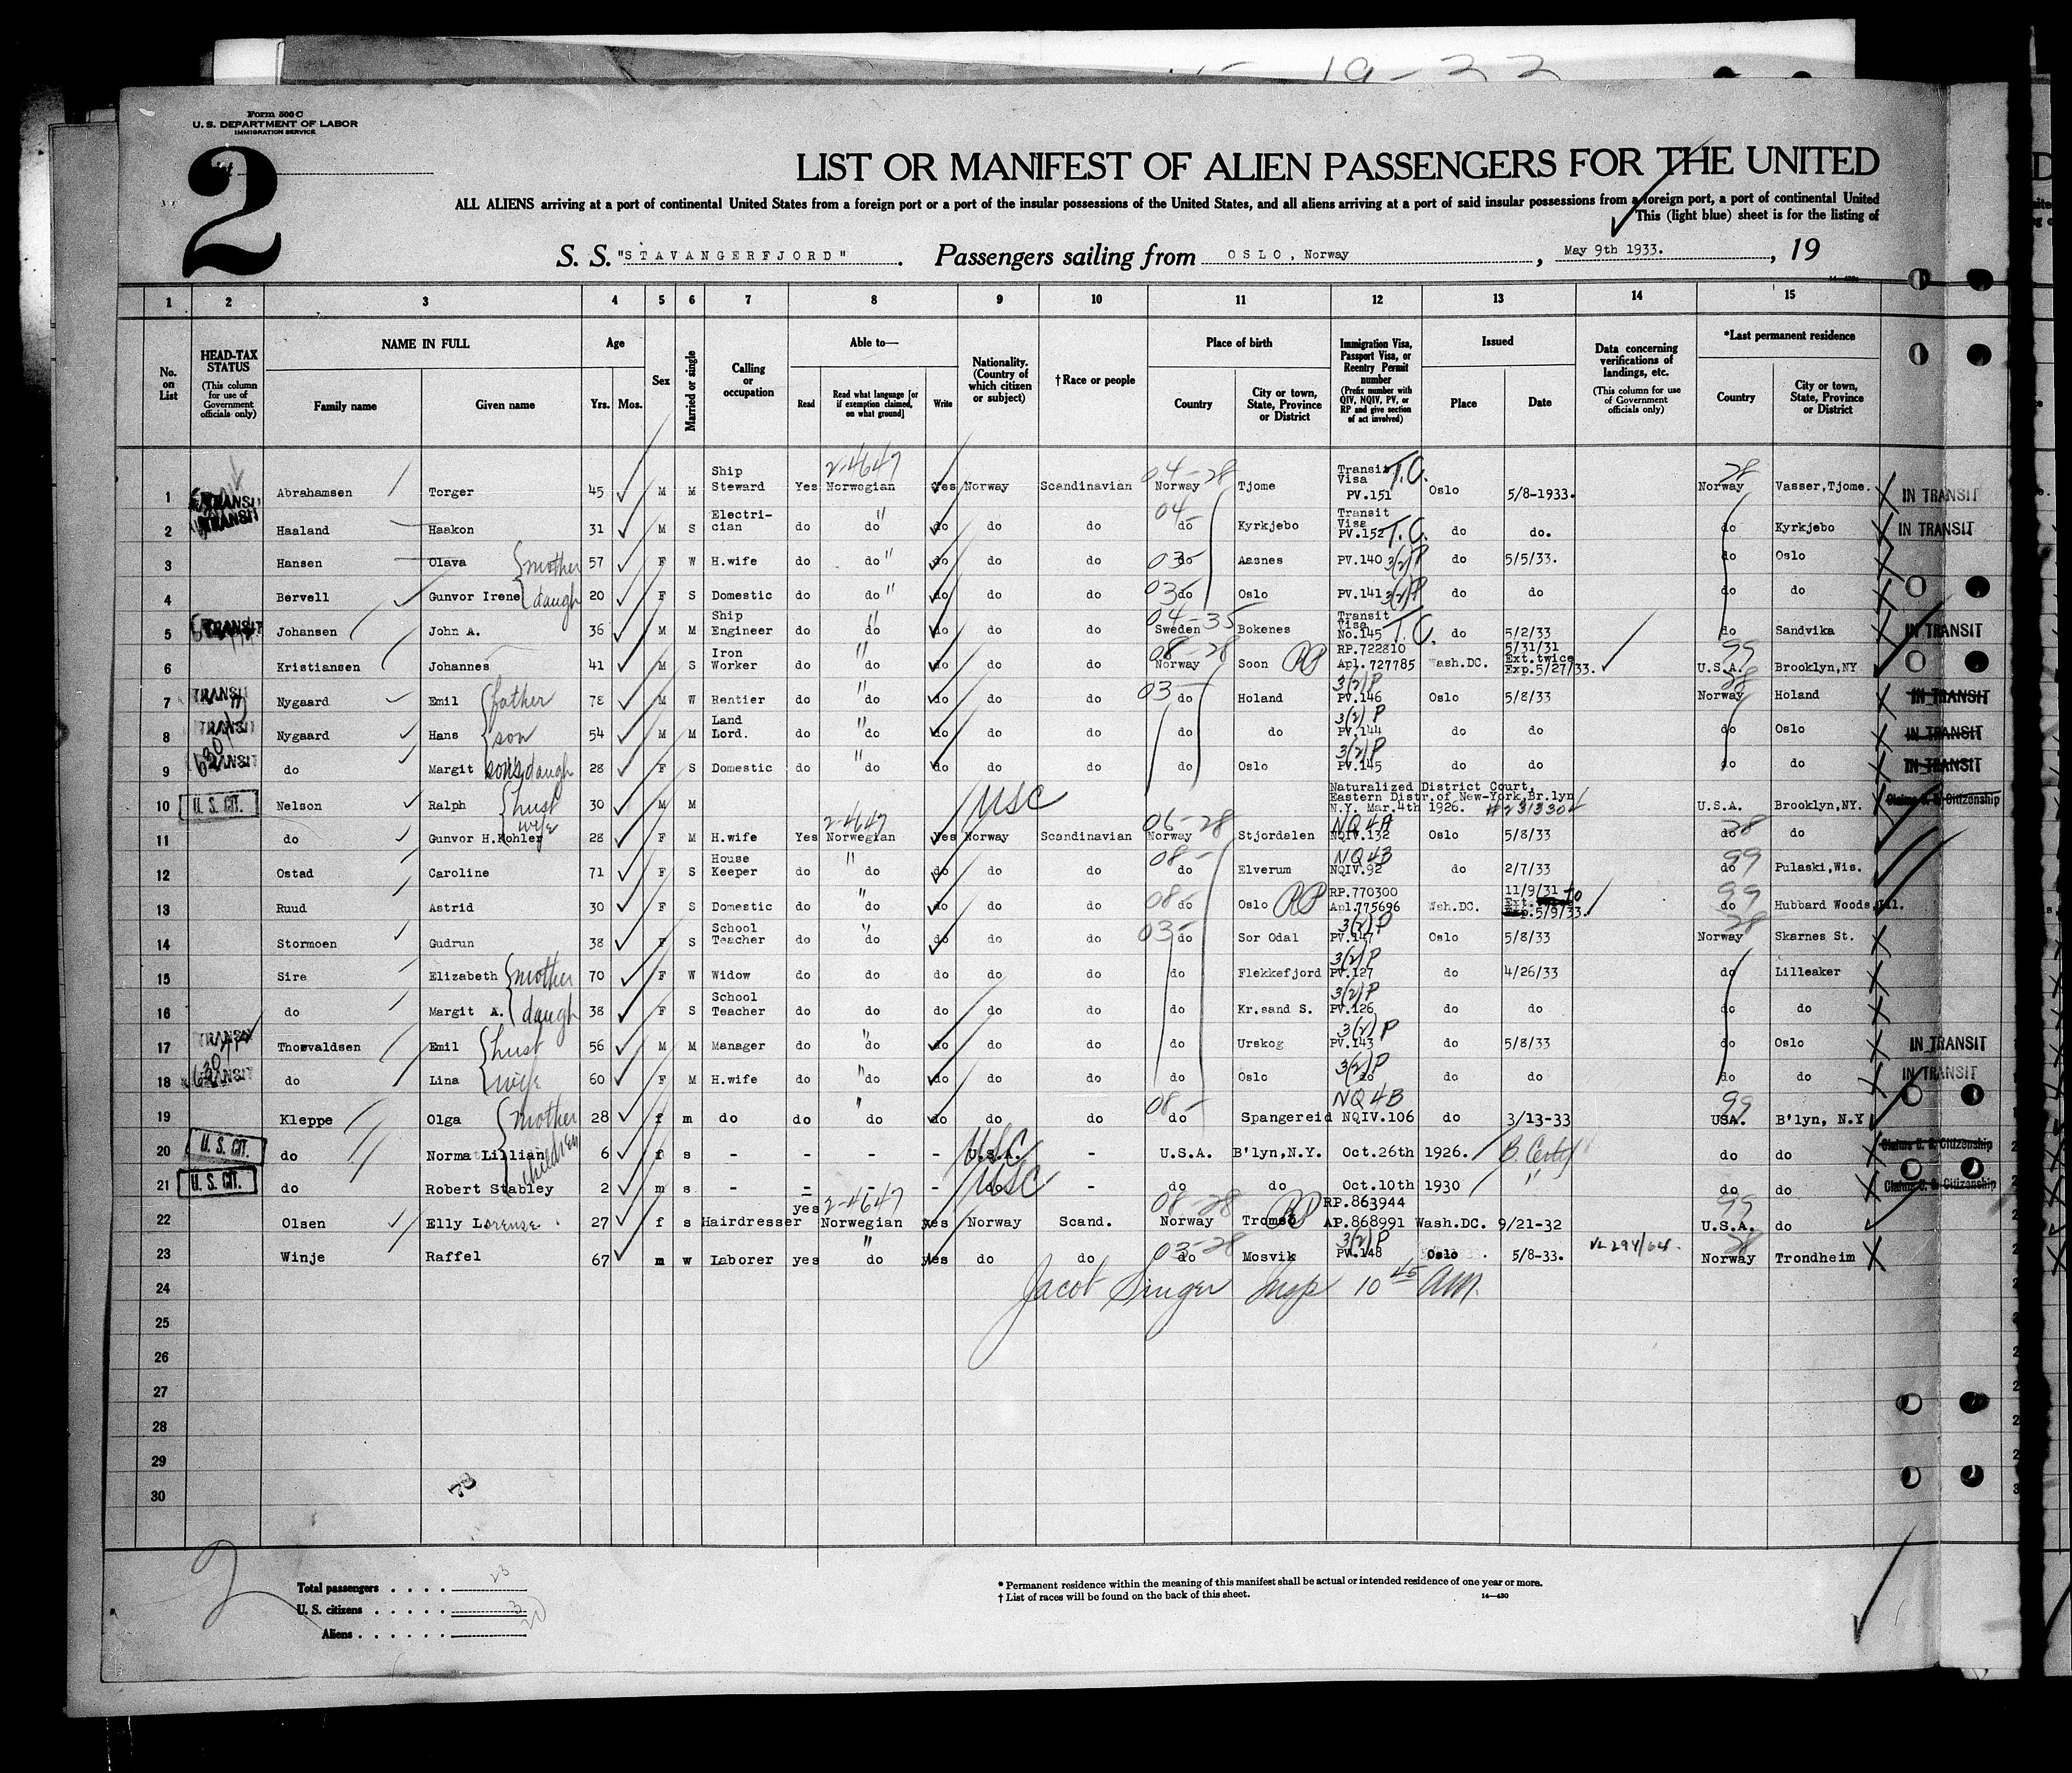 19-33
Form 500 C
U. S. DEPARTMENT OF LABOR
IMMIGRATION SERVICE
2
LIST OR MANIFEST OF ALIEN PASSENGERS FOR THE UNITED
ALL ALIENS arriving at a port of continental United States from a foreign port or a port of the insular possessions of the United States, and all aliens arriving at a port of said insular possessions from a foreign port, a port of continental United
This (light blue) sheet is for the listing of
S. S. "STAVANGERFJORD". Passengers sailing from OSLO, Norway, May 9th 1933., 19
1 2 3 4 5 6 7 8 9 10 11 12 13 14 15
No. on List
HEAD-TAX STATUS
(This column for use of Government officials only)
NAME IN FULL
Family name Given name
Age
Yrs. Mos.
Sex
Married or single
Calling or occupation
Able to—
Read
Read what language [or if exemption claimed, on what ground]
Write
Nationality. (Country of which citizen or subject)
†Race or people
Place of birth
Country
City or town, State, Province or District
Immigration Visa, Passport Visa, or Reentry Permit number
(Prefix number with QIV, NQIV, PV, or RP and give section of act involved)
Issued
Place Date
Data concerning verifications of landings, etc.
(This column for use of Government officials only)
*Last permanent residence
Country
City or town, State, Province or District
1 TRANSIT Abrahamsen Torger 45 M M Ship Steward Yes 2-4647 Norwegian Yes Norway Scandinavian 04-28 Norway Tjome Transit Visa PV.151 T.C. Oslo 5/8-1933. 28 Norway Vasser,Tjome. IN TRANSIT
2 TRANSIT Haaland Haakon 31 M S Electrician do do " do do do 04- do Kyrkjebo Transit Visa PV.152 T.C. do do. do Kyrkjebo IN TRANSIT
3 Hansen Olava mother 57 F W H.wife do do " do do do 03- do Aasnes PV.140 3(2)P do 5/5/33. do Oslo
4 Bervell Gunvor Irene daugh 20 F S Domestic do do " do do do 03 do Oslo PV.141 3(2)P do do do do
5 TRANSIT Johansen John A. 36 M M Ship Engineer do do " do do do 04-35 Sweden Bokenes Transit Visa No.145 T.C. do 5/2/33 do Sandvika IN TRANSIT
6 Kristiansen Johannes 41 M S Iron Worker do do " do do do 08-28 Norway Soon RP RP.722810 Apl.727785 Wash.DC. 5/31/31 Ext.twice Exp.5/27/33. 99 U.S.A. Brooklyn,NY
7 TRANSIT Nygaard Emil father 78 M W Rentier do do " do do do 03- do Holand 3(2)P PV.146 Oslo 5/8/33 28 Norway Holand IN TRANSIT
8 TRANSIT Nygaard Hans son 54 M M Land Lord. do do " do do do do do 3(2)P PV.144 do do do Oslo IN TRANSIT
9 TRANSIT do Margit sons daugh 28 F S Domestic do do " do do do do Oslo 3(2)P PV.145 do do do do IN TRANSIT
10 U. S. CIT. Nelson Ralph hust 30 M M USC Naturalized District Court, Eastern Distr.of New-York,Br.lyn N.Y. Mar.4th 1926. #2313304 U.S.A. Brooklyn,NY. Claims U. S. Citizenship
11 do Gunvor H.Kohler wife 28 F M H.wife Yes 2-4647 Norwegian Yes Norway Scandinavian 06-28 Norway Stjordalen NQ4A NQIV.132 Oslo 5/8/33 28 do do
12 Ostad Caroline 71 F S House Keeper do do " do do do 08- do Elverum NQ4B NQIV.92 do 2/7/33 99 do Pulaski,Wis.
13 Ruud Astrid 30 F S Domestic do do " do do do 08- do Oslo RP RP.770300 Apl.775696 Wsh.DC. 11/9/31 Ext. to Exp.5/9/33. 99 do Hubbard Woods,Ill.
14 Stormoen Gudrun 38 F S School Teacher do do " do do do 03- do Sor Odal 3(2)P PV.147 Oslo 5/8/33 28 Norway Skarnes St.
15 Sire Elizabeth mother 70 F W Widow do do do do do do Flekkefjord 3(2)P PV.127 do 4/26/33 do Lilleaker
16 do Margit A. daugh 38 F S School Teacher do do do do do do Kr.sand S. 3(2)P PV.126 do do do do
17 TRANSIT Thorvaldsen Emil hust 56 M M Manager do do " do do do do Urskog 3(2)P PV.143 do 5/8/33 do Oslo IN TRANSIT
18 TRANSIT do Lina wife 60 F M H.wife do do " do do do do Oslo 3(2)P do do do do do IN TRANSIT
19 Kleppe Olga mother 28 f m do do do " do do do 08- do Spangereid NQ4B NQIV.106 do 3/13-33 99 USA. B'lyn, N.Y
20 U. S. CIT. do Norma Lillian children 6 f s - - - - U.S.A. USC - U.S.A. B'lyn,N.Y. Oct.26th 1926. B. Certf do do Claims U. S. Citizenship
21 U. S. CIT. do Robert Stabley 2 m s - - - - do USC - do do Oct.10th 1930 " do do Claims U. S. Citizenship
22 Olsen Elly Lorense 27 f s Hairdresser yes 2-4647 Norwegian yes Norway Scand. 08-28 Norway Tromsö RP RP.863944 AP.868991 Wash.DC. 9/21-32 99 U.S.A. do
23 Winje Raffel 67 m w Laborer yes do " yes do do 03-28 do Mosvik 3(2)P PV.148 Oslo 5/8-33. 28 Norway Trondheim
24 Jacob Singer Insp 10 45 AM.
25
26
27
28
29
30
2
Total passengers . . . . 23
U. S. citizens . . . . . 3
Aliens . . . . . . 20
* Permanent residence within the meaning of this manifest shall be actual or intended residence of one year or more.
† List of races will be found on the back of this sheet.
14—430